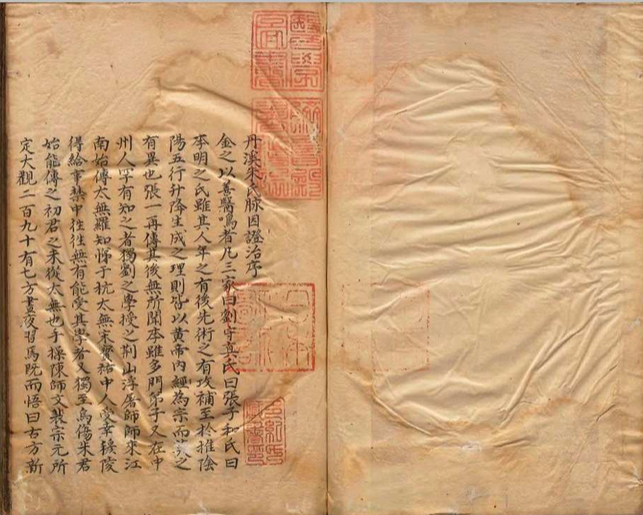 丹溪朱氏脉因證治序
金之以善醫鳴者凡三家曰劉守真氏曰張子和氏曰
李明之氏雖其人年之有後先術之有攻補至於推陰
陽五行升降生成之理則皆以黄帝內經為宗而莫之
有異也張一再傳其後無所聞李雖多門第子又在中
州人罕有知之者獨劉之學授之荆山浮屠師師來江
南始傳太無羅知悌于杭太無宋寶祐中人受幸穆陵
得給事禁中徃徃無有能受其學者又獨至烏傷朱君
始能傳之初君之未從太無也手操陳師文裴宗元所
定大觀二百九十有七方晝夜習焉既而悟曰古方新